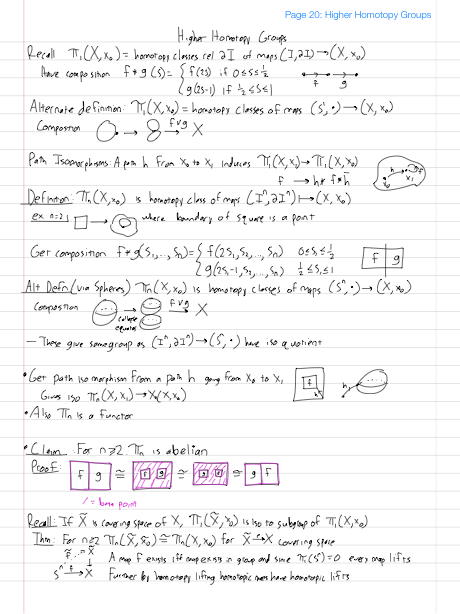 Page 20: Higher Homotopy Groups
Higher Homotopy Groups
Recall π₁(X,x₀) = homotopy classes rel ∂I of maps (I,∂I)→(X,x₀)
Have composition f*g(s) = { f(2s) if 0≤s≤½
g(2s-1) if ½≤s≤1
f g
Alternate definition: π₁(X,x₀) = homotopy classes of maps (S¹,•)→(X,x₀)
Composition → f∨g → X
Path Isomorphisms: A path h from x₀ to x₁ induces π₁(X,x₁)→π₁(X,x₀)
f → h*f*h̄
h x₀ x₁ f
Definition: πₙ(X,x₀) is homotopy class of maps (Iⁿ,∂Iⁿ)↦(X,x₀)
ex n=2 → where boundary of square is a point
Get composition f*g(s₁,s₂,...,sₙ) = { f(2s₁,s₂,...,sₙ) 0≤s₁≤½
g(2s₁-1,s₂,...,sₙ) ½≤s₁≤1
f g
Alt Defn (via Spheres) πₙ(X,x₀) is homotopy classes of maps (Sⁿ,•)→(X,x₀)
Composition → f∨g → X
collapse equator
– These give same group as (Iⁿ,∂Iⁿ)→(Sⁿ,•) have iso quotient
• Get path isomorphism from a path h going from x₀ to x₁
Gives iso πₙ(X,x₁)→πₙ(X,x₀)
f h
• Also πₙ is a functor
• Claim: For n≥2 πₙ is abelian
Proof: f g ≅ f g ≅ g f ≅ g f
/ = base point
Recall: If X̃ is covering space of X, π₁(X̃,x̃₀) is iso to subgroup of π₁(X,x₀)
Thm: For n≥2 πₙ(X̃,x̃₀) ≅ πₙ(X,x₀) for X̃→X covering space
f̃ X̃ A map f̃ exists iff map exists in group and since π₁(Sⁿ)=0 every map lifts
Sⁿ f→ X Further by homotopy lifting homotopic maps have homotopic lifts